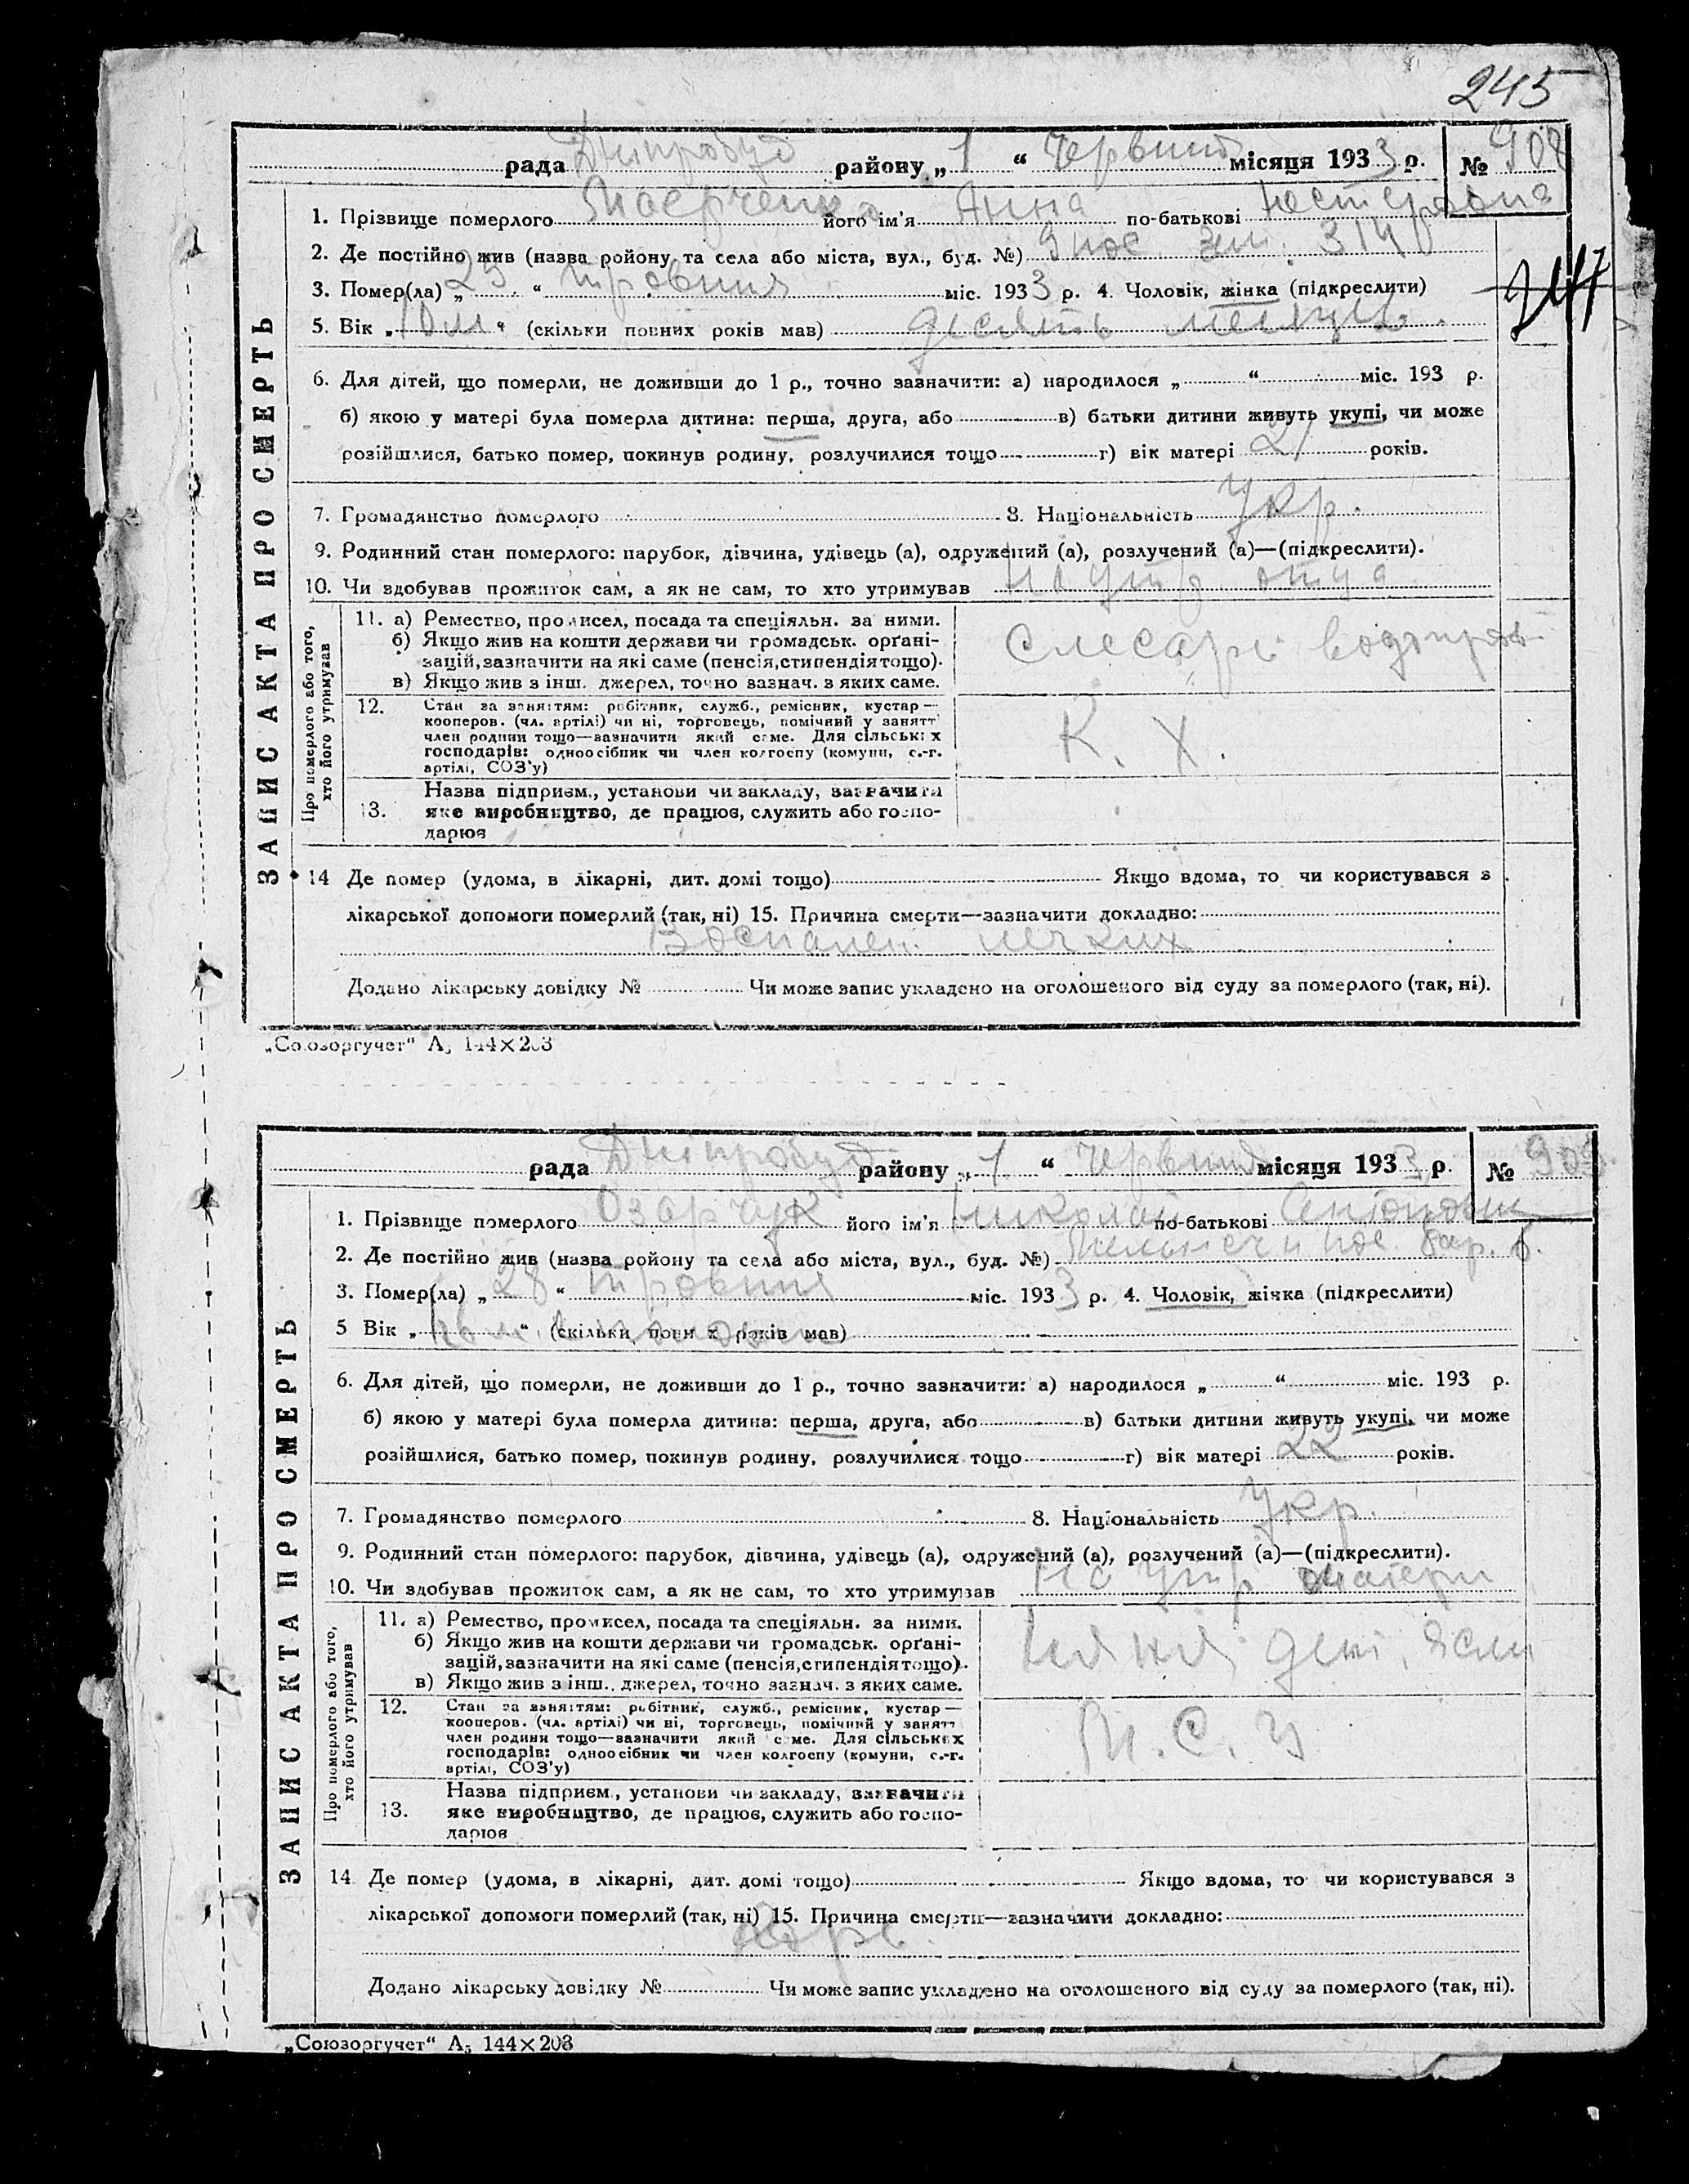 245
рада Дніпробуд району „1“ Червня місяця 1933 р. № 908
1. Прізвище померлого його ім'я Анна по-батькові Нестеровна
2. Де постійно жив (назва ройону та села або міста, вул., буд. №) 9 пос. зем. 314
3. Помер(ла) „29“ травня міс. 1933 р. 4. Чоловік, жінка (підкреслити)
5. Вік „10 м“ (скільки повних років мав) десять месяцев.
6. Для дітей, що померли, не доживши до 1 р., точно зазначити: а) народилося „ “ міс. 193 р.
б) якою у матері була померла дитина: перша, друга, або в) батьки дитини живуть укупі, чи може
розійшлися, батько помер, покинув родину, розлучилися тощо г) вік матері 21 років.
7. Громадянство померлого 8. Національність Укр.
9. Родинний стан померлого: парубок, дівчина, удівець (а), одружений (а), розлучений (а)—(підкреслити).
10. Чи здобував прожиток сам, а як не сам, то хто утримував На утр. отца
ЗАПИС АКТА ПРО СМЕРТЬ
Про померлого або того,
хто його утримував
11. а) Ремество, промисел, посада та спеціяльн. за ними.
б) Якщо жив на кошти держави чи громадськ. орґані-
зацій, зазначити на які саме (пенсія, стипендія тощо).
в) Якщо жив з інш. джерел, точно зазнач. з яких саме.
Слесарь водопров.
12. Стан за заняттям: робітник, служб., ремісник, кустар—
кооперов. (чл. артілі) чи ні, торговець, помічний у занятт
член родини тощо—зазначити який саме. Для сільських
господарів: одноосібник чи член колгоспу (комуни, с.-г.
артілі, СОЗ'у)
К. Х.
13. Назва підприєм., установи чи закладу, зазначити
яке виробництво, де працює, служить або госпо-
дарює
14 Де помер (удома, в лікарні, дит. домі тощо) Якщо вдома, то чи користувався з
лікарської допомоги померлий (так, ні) 15. Причина смерти—зазначити докладно:
Воспален. легких
Додано лікарську довідку № Чи може запис укладено на оголошеного від суду за померлого (так, ні).
„Союзоргучет“ А₅ 144×203
рада Дніпробуд району „1“ Червня місяця 1933 р. № 909
1. Прізвище померлого Озарчук його ім'я Николай по-батькові Антонович
2. Де постійно жив (назва ройону та села або міста, вул., буд. №) пос. бар. 6.
3. Помер(ла) „28“ травня міс. 1933 р. 4. Чоловік, жінка (підкреслити)
5 Вік „ “ (скільки повних років мав)
6. Для дітей, що померли, не доживши до 1 р., точно зазначити: а) народилося „ “ міс. 193 р.
б) якою у матері була померла дитина: перша, друга, або в) батьки дитини живуть укупі, чи може
розійшлися, батько помер, покинув родину, розлучилися тощо г) вік матері 22 років.
7. Громадянство померлого 8. Національність Укр.
9. Родинний стан померлого: парубок, дівчина, удівець (а), одружений (а), розлучений (а)—(підкреслити).
10. Чи здобував прожиток сам, а як не сам, то хто утримував На утр матери
ЗАПИС АКТА ПРО СМЕРТЬ
Про померлого або того,
хто його утримував
11. а) Ремество, промисел, посада та спеціяльн. за ними.
б) Якщо жив на кошти держави чи громадськ. орґані-
зацій, зазначити на які саме (пенсія, стипендія тощо).
в) Якщо жив з інш. джерел, точно зазнач. з яких саме.
Няня дет. ясли
12. Стан за заняттям: робітник, служб., ремісник, кустар—
кооперов. (чл. артілі) чи ні, торговець, помічний у занятт
член родини тощо—зазначити який саме. Для сільських
господарів: одноосібник чи член колгоспу (комуни, с.-г.
артілі, СОЗ'у)
М. С. У
13. Назва підприєм., установи чи закладу, зазначити
яке виробництво, де працює, служить або госпо-
дарює
14 Де помер (удома, в лікарні, дит. домі тощо) Якщо вдома, то чи користувався з
лікарської допомоги померлий (так, ні) 15. Причина смерти—зазначити докладно:
Додано лікарську довідку № Чи може запис укладено на оголошеного від суду за померлого (так, ні).
„Союзоргучет“ А₅ 144×203